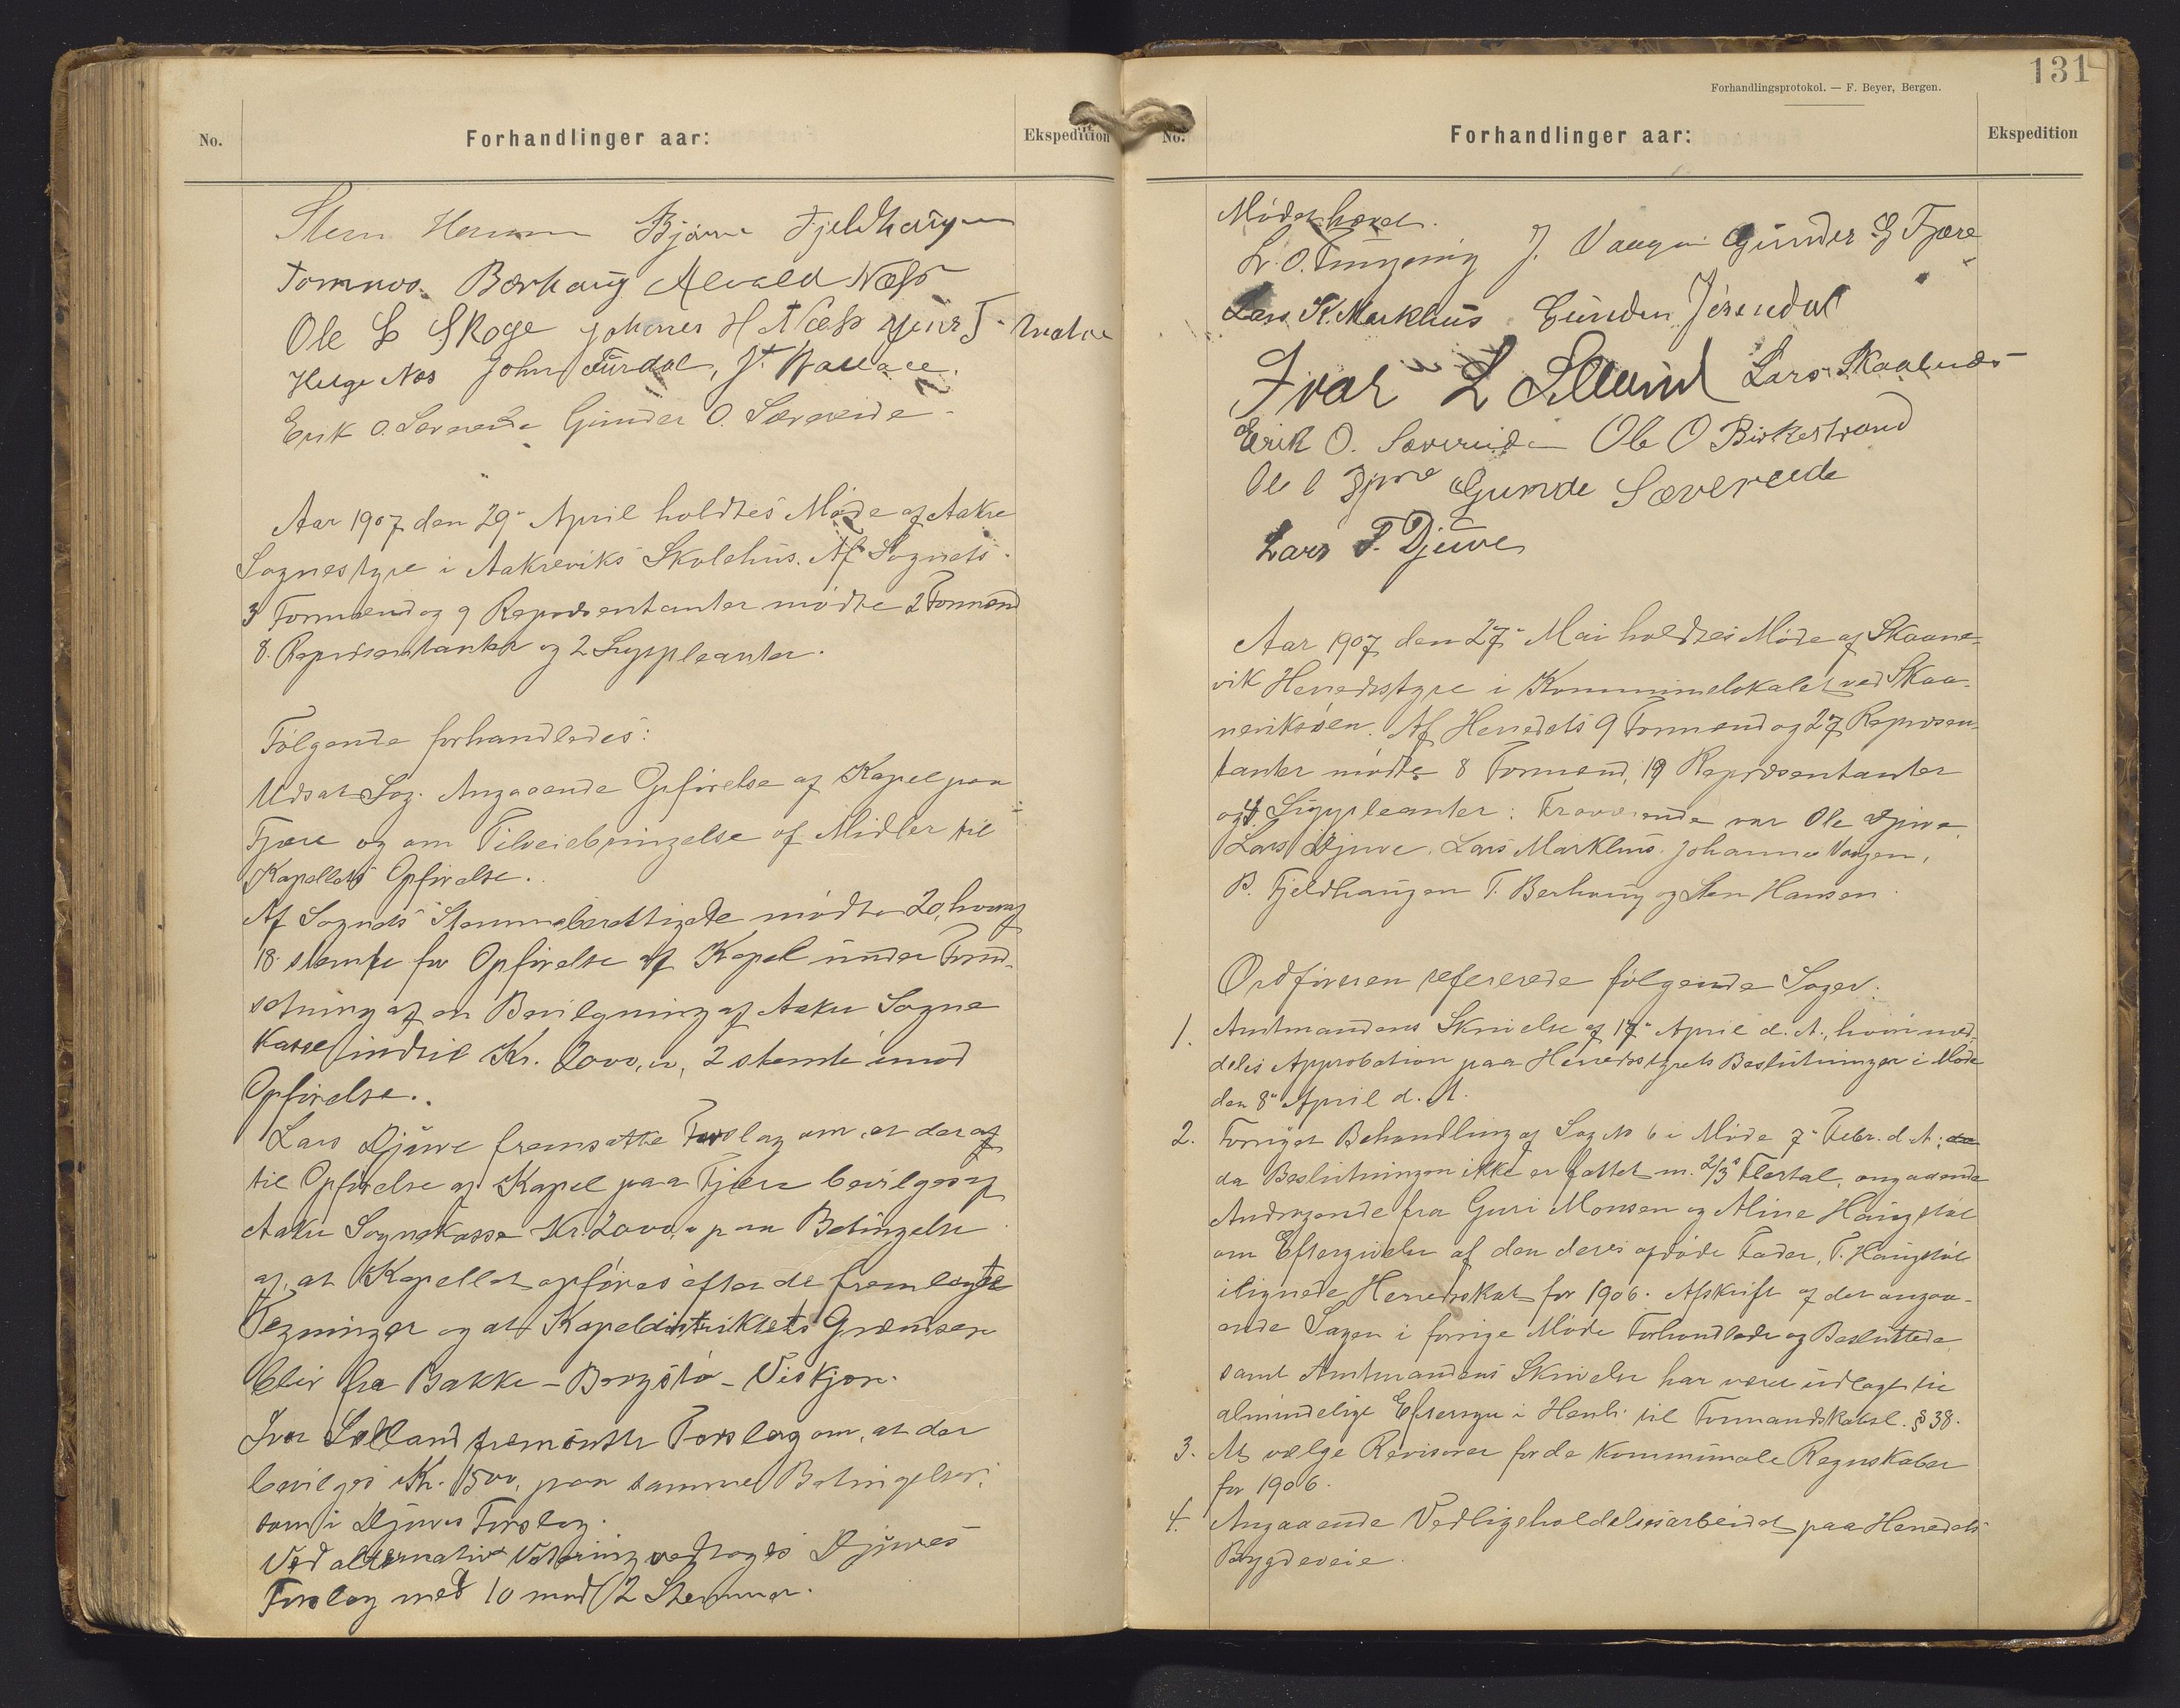 No.
Forhandlinger aar:
Ekspedition
Sten Hansen Bjarne Fjeldhaugen
Tommas Berhaug Alvald Næss
Ole L Skoge Johannes H Næss
Helge Næs John Furdal,
Erik O. Sævereide Gunder O. Sævereide
Aar 1907 den 29de April holdtes Møde af Aakre
Sognestyre i Aakreviks Skolehus. Af Sognets
3 Formænd og 9 Repræsentanter mødte 2 Formænd
8 Repræsentanter og 2 Suppleanter.
Følgende forhandledes:
Udsat Sag. Angaaende Opførelse af Kapel paa
Fjære og om Tilveiebringelse af Midler til
Kapellets Opførelse.
Af Sognets Stemmeberettigede mødte 20, hvoraf
18 stemte for Opførelse af Kapel under Forud-
sætning af en Bevilgning af Aakre Sogne
kasse indtil Kr. 2000,00, 2 stemte imod
Opførelse.
Lars Djuve fremsatte Forslag om, at der af
til Opførelse af Kapel paa Fjære bevilges af
Aakre Sognekasse Kr. 2000,- paa Betingelse
af, at Kapellet opføres efter de fremlagte
Tegninger og at Kapeldistriktets Grændser
blir fra Bakke - Borgstø - Viskjær.
Ivar Sølland fremsatte Forslag om, at der
bevilges Kr. 1500, paa samme Betingelser
som i Djuves Forslag.
Ved alternativ Votering vedtoges Djuves
Forslag med 10 mod 2 Stemmer.
131
Forhandlingsprotokol. — F. Beyer, Bergen.
No.
Forhandlinger aar:
Ekspedition
Mødet hævet.
L. O. J. Vaagen Gunder G Fjære
Lars K. Markhus Gunder Jørendal
Ivar L Sølland Lars Skaalnes
Erik O. Sævereide Ole O Birkestrand
Ole O Gunde Sævereide
Lars T. Djuve
Aar 1907 den 27de Mai holdtes Møde af Skaane-
vik Herredsstyre i Kommunelokalet ved Skaa-
neviksøen. Af Herredets 9 Formænd og 27 Repræsen-
tanter mødte 8 Formænd, 19 Repræsentanter
og 4 Suppleanter: Fraværende var Ole Djuve
Lars Djuve, Lars Markhus, Johannes Vaagen,
B. Fjeldhaugen T. Berhaug og Sten Hansen.
Ordføreren refererede følgende Sager:
1. Amtmandens Skrivelse af 17de April d. A., hvori med-
deles Approbation paa Herredsstyrets Beslutninger i Møde
den 8de April d. A.
2. Fornyet Behandling af Sag No 6 i Møde 7de Febr. d. A.;
da Beslutningen ikke er fattet m. 2/3s Flertal, angaaende
Andragende fra Guri Monsen og Aline Haugstøl
om Eftergivelse af den deres afdøde Fader, T. Haugstøl
ilignede Herredsskat for 1906. Afskrift af det angaa-
ende Sagen i forrige Møde Forhandlede og Besluttede,
samt Amtmandens Skrivelse har været udlagt til
almindelige Eftersyn i Henh. til Formandskabsl. § 38.
3. At vælge Revisorer for de kommunale Regnskaber
for 1906.
4. Angaaende Vedligeholdelsesarbeidet paa Herredets
Bygdeveie.